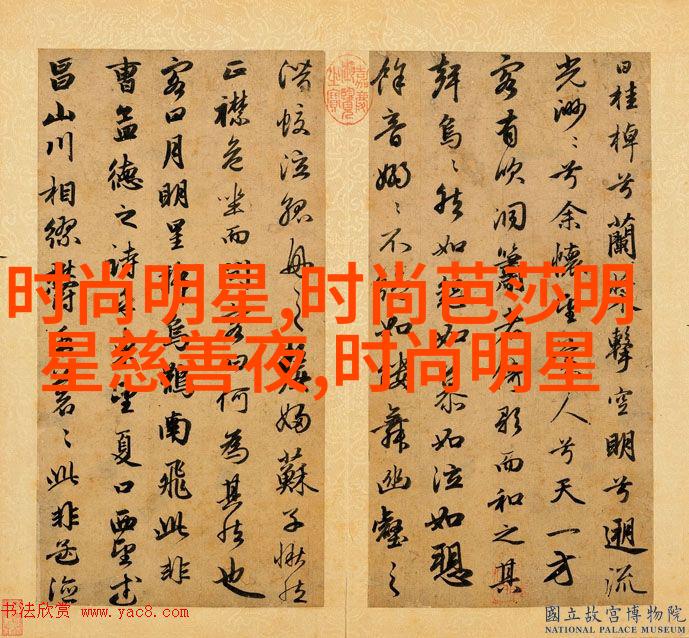 曰桂棹兮蘭槳擊空明兮遡流
光渺〻兮余懷望美人兮天一方
客有吹洞簫者倚歌而和之其
聲烏〻然如怨如慕如泣如愬
餘音嫋〻不絕如縷舞幽壑之
潛蛟泣孤舟之嫠婦蘇子愀然
正襟危坐而問客曰何為其然也
客曰月明星稀烏鵲南飛此非
曹孟德之詩乎東望夏口西望武
昌山川相繆鬱乎蒼〻此非孟德
嘉慶御覽之寶
时尚明星,时尚芭莎明
星慈善夜,时尚明星
书法欣赏 www.yac8.com
國立故宮博物院
NATIONAL PALACE MUSEUM